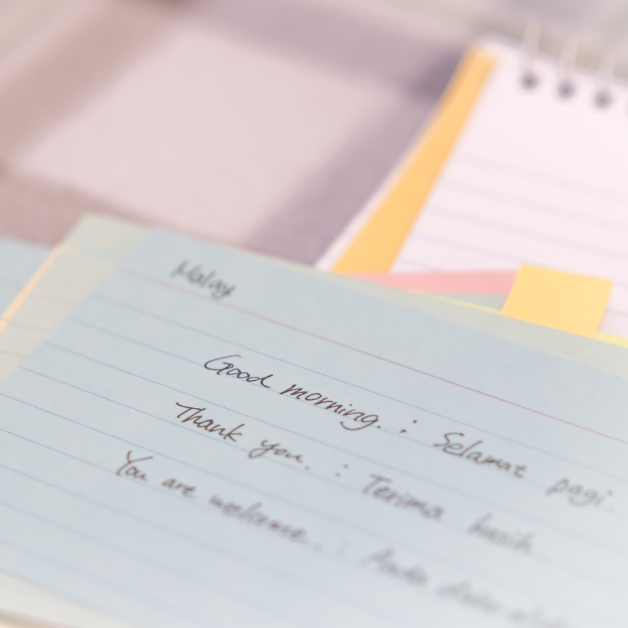 Malay
Good morning. : Selamat pagi
Thank you. : Terima kasih
You are welcome. :